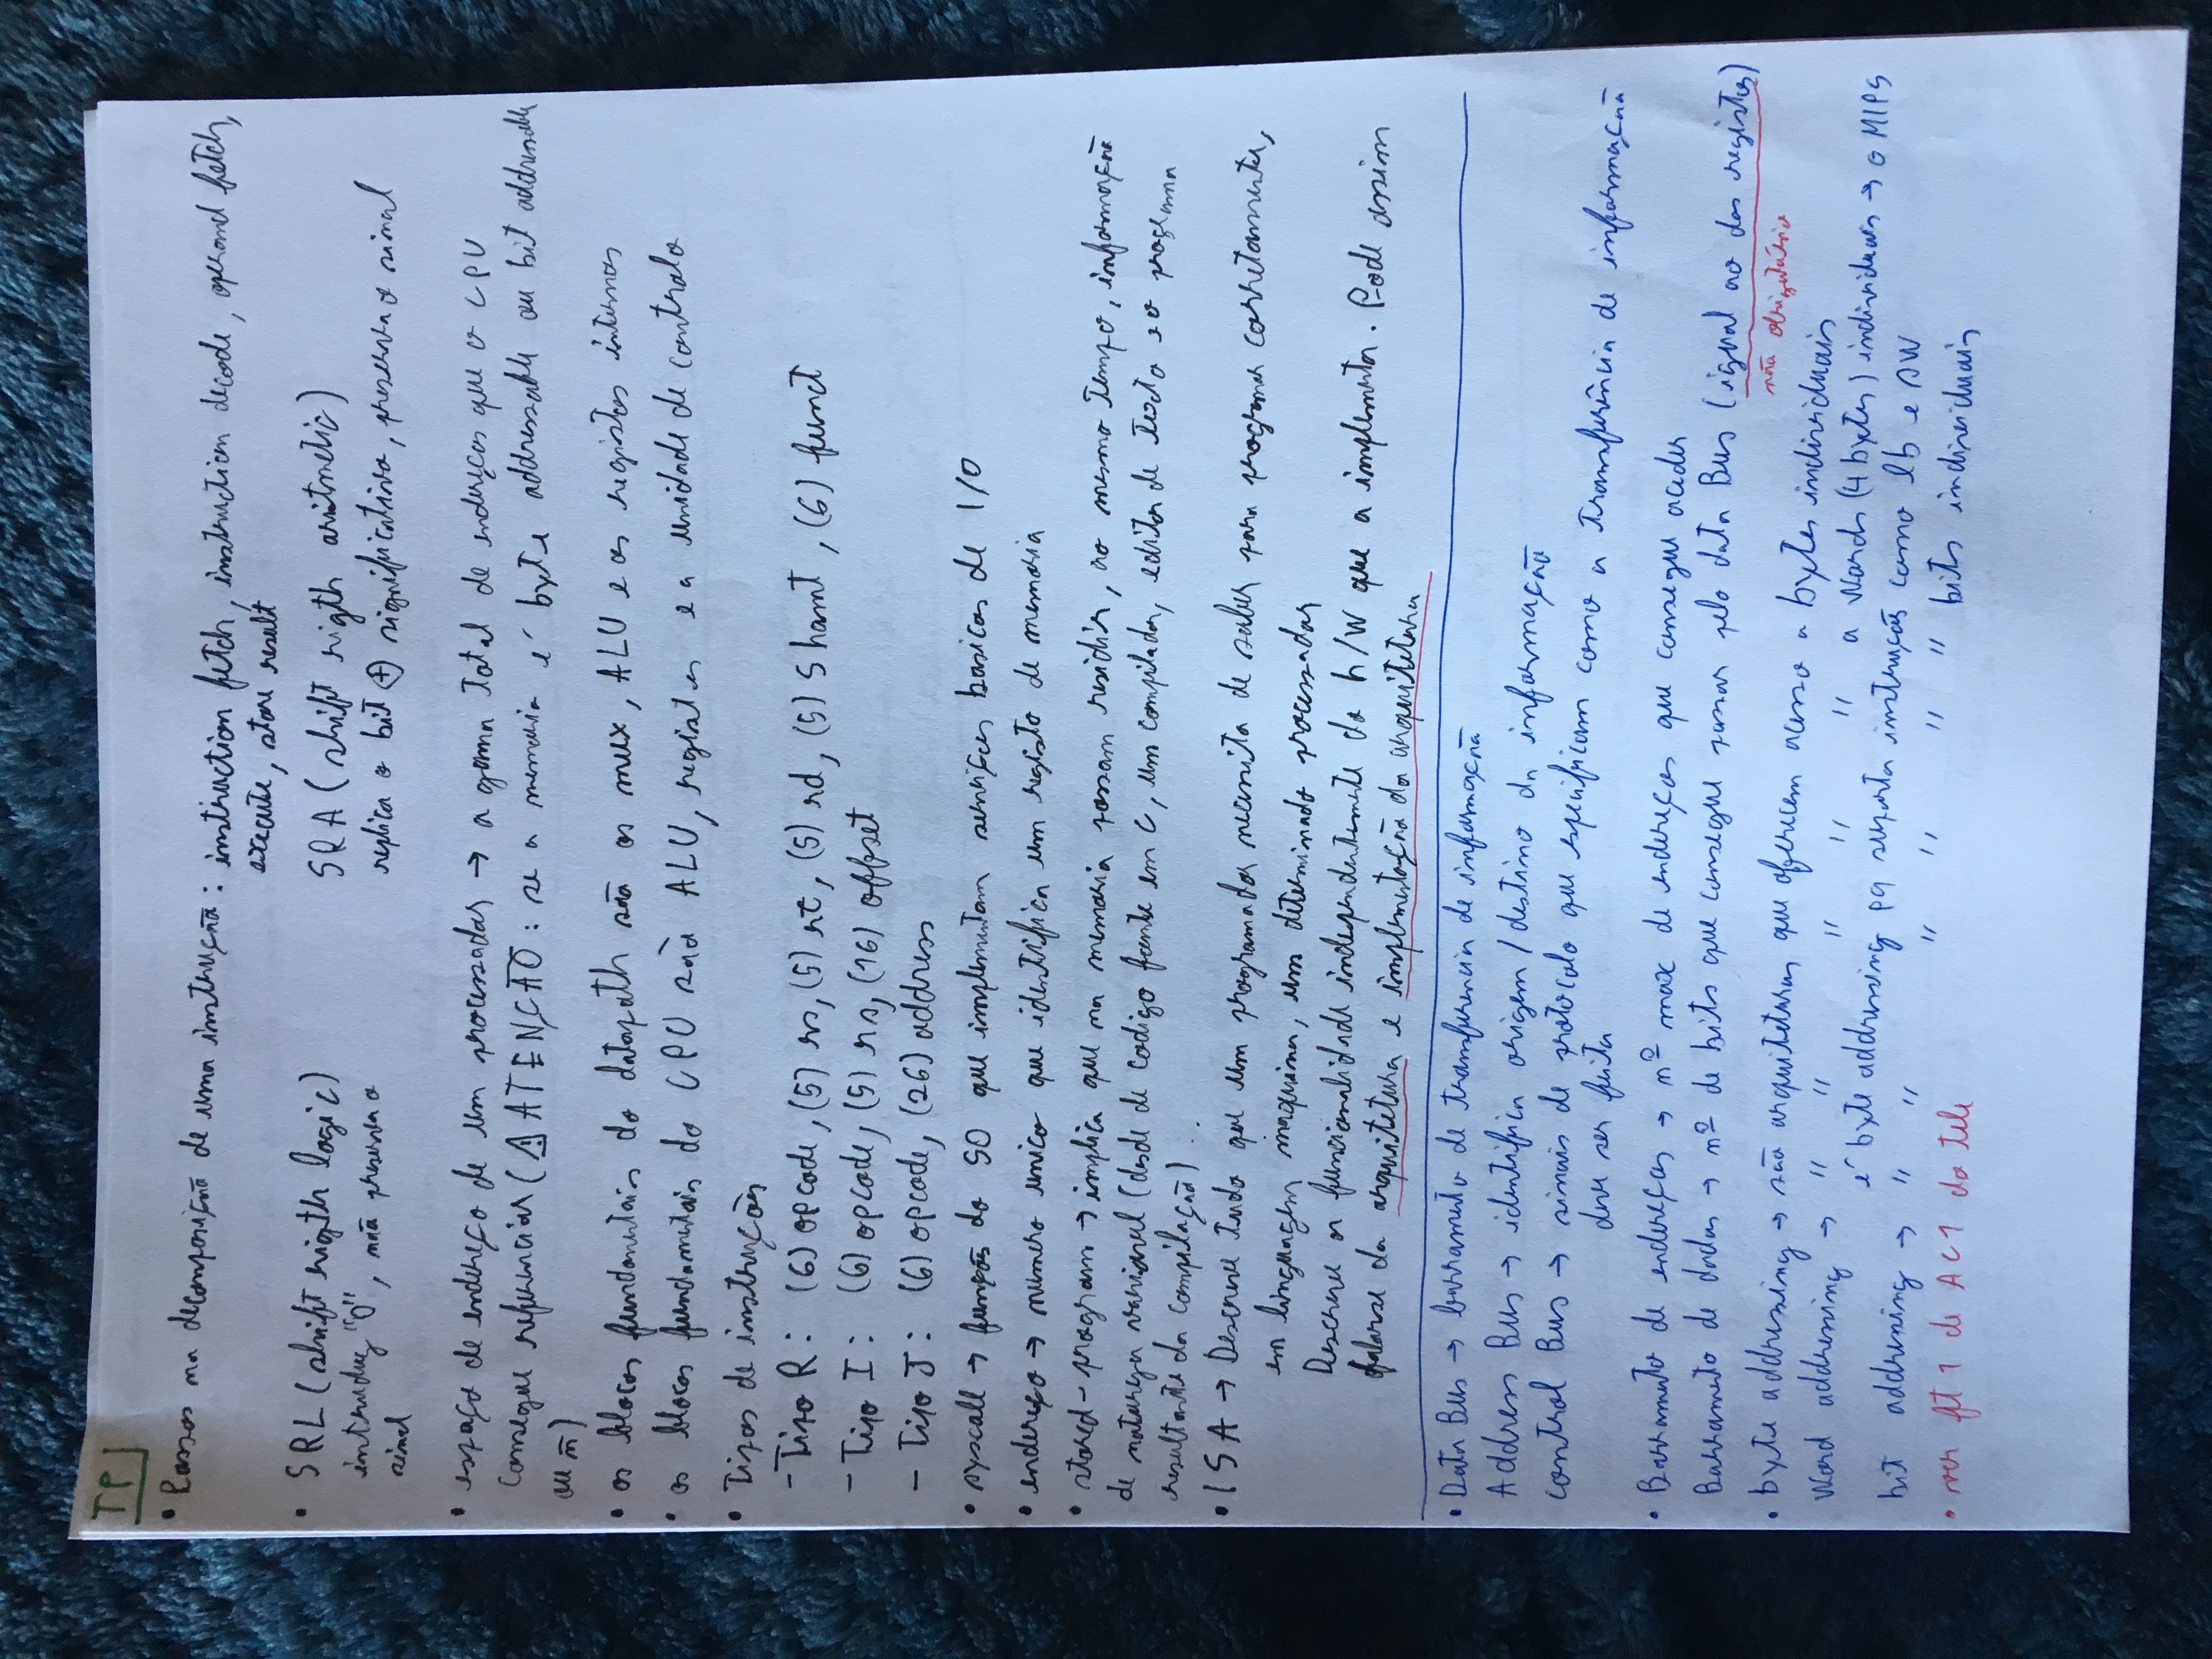 TP
• Passos na decomposição de uma instrução: instruction fetch, instruction decode, operand fetch,
execute, store result
• SRL (shift rigth logic)
introduz "0", não preserva o
sinal
SRA (shift rigth aritmetic)
replica o bit (+) significativo, preserva o sinal
• espaço de endereço de um processador → a gama total de endereços que o CPU
consegue referenciar (⚠ ATENÇÃO: se a memoria é byte addressable ou bit addressable
ou ñ)
• os blocos fundamentais do datapath são os mux, ALU e os registos internos
• os blocos fundamentais do CPU são ALU, registos e a unidade de controlo
• Tipos de instruções
- Tipo R: (6) opcode, (5) rs, (5) rt, (5) rd, (5) Shamt, (6) funct
- Tipo I: (6) opcode, (5) rs, (16) offset
- Tipo J: (6) opcode, (26) address
• syscall → funções do SO que implementam serviços basicos de I/O
• endereço → numero unico que identifica um registo de memoria
• stored-program → implica que na memoria possam residir, ao mesmo tempo, informação
de natureza variavel (desde de codigo fonte em C, um compilador, editor de texto e o programa
resultante da compilação)
• ISA → Descreve tudo que um programador necessita de saber para programar corretamente,
em linguagem maquina, um determinado processador
Descreve a funcionalidade independentemente do h/w que a implementa. Pode assim
falarse da arquitetura e implementação da arquitetura
• Data Bus → barramento de transferencia de informação
Address Bus → identifica origem/destino da informação
control Bus → sinais de protocolo que especificam como a transferência de informação
deve ser feita
• Barramento de endereços → nº max de endereços que consegue aceder
Barramento de dados → nº de bits que consegue passar pelo data Bus (igual ao dos registos)
não obrigatório
• byte addressing → são arquiteturas que oferecem acesso a bytes individuais
Word addressing → " " " " " a Words (4 bytes) individuais → o MIPS
é byte addressing pq suporta instruções como lb e sw
bit addressing → " " " " " " bits individuais
• ver ft 1 de AC1 do tele